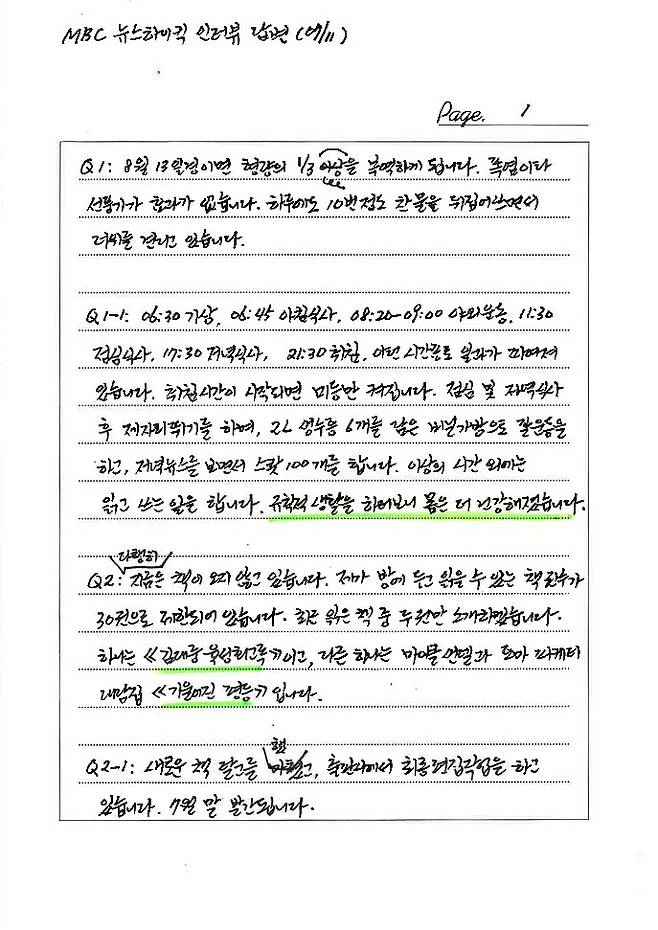 MBC 뉴스하이킥 인터뷰 답변 (07/11)
Page. 1
Q1: 8월 13일경이면 형량의 1/3 이상을 복역하게 됩니다. 폭염이라
선풍기가 효과가 없습니다. 하루에도 10번 정도 찬물을 뒤집어쓰면서
더위를 견디고 있습니다.
Q1-1: 06:30 기상, 06:45 아침식사, 08:20-09:00 야외운동, 11:30
점심식사, 17:30 저녁식사, 21:30 취침, 이런 시간표로 일과가 짜여져
있습니다. 취침시간이 시작되면 미등만 켜집니다. 점심 및 저녁식사
후 제자리뛰기를 하며, 2L 생수통 6개를 넣은 비닐가방으로 팔운동을
하고, 저녁뉴스를 보면서 스쾃 100개를 합니다. 이상의 시간 외에는
읽고 쓰는 일을 합니다. 규칙적 생활을 하다보니 몸은 더 건강해졌습니다.
다행히
Q2: 지금은 책이 오지 않고 있습니다. 제가 방에 두고 읽을 수 있는 책 권수가
30권으로 제한되어 있습니다. 최근 읽은 책 중 두 권만 소개하겠습니다.
하나는 《김대중 육성회고록》이고, 다른 하나는 마이클 샌델과 토마 피케티
대담집 《기울어진 평등》입니다.
Q2-1: 새로운 책 탈고를 했고, 출판사에서 최종편집작업을 하고
있습니다. 7월 말 발간됩니다.